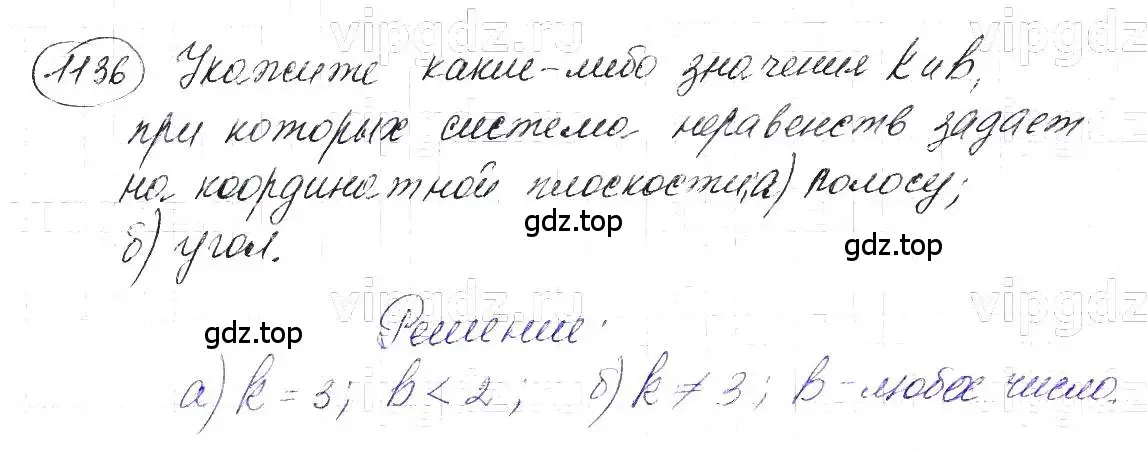 vipgdz.ru vipgdz
1136 Укажите какие-либо значения k и b,
при которых система неравенств задает
на координатной плоскости: а) полосу;
б) угол.
gdz.top
gdz.top
vipgdz.ru vipgdz
gdz.top
Решение:
а) k = 3; b < 2; б) k ≠ 3; b - любое число.